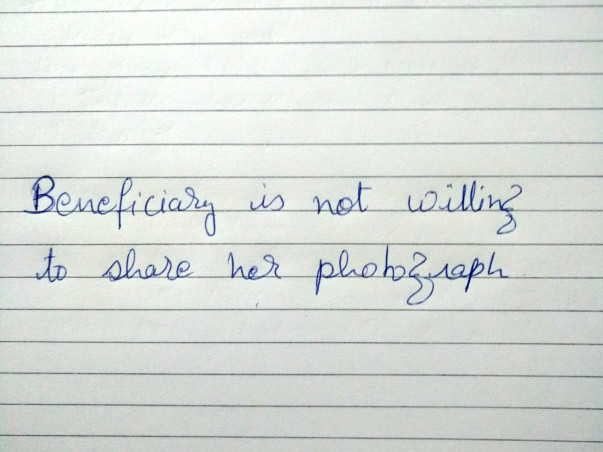 Beneficiary is not willing
to share her photograph